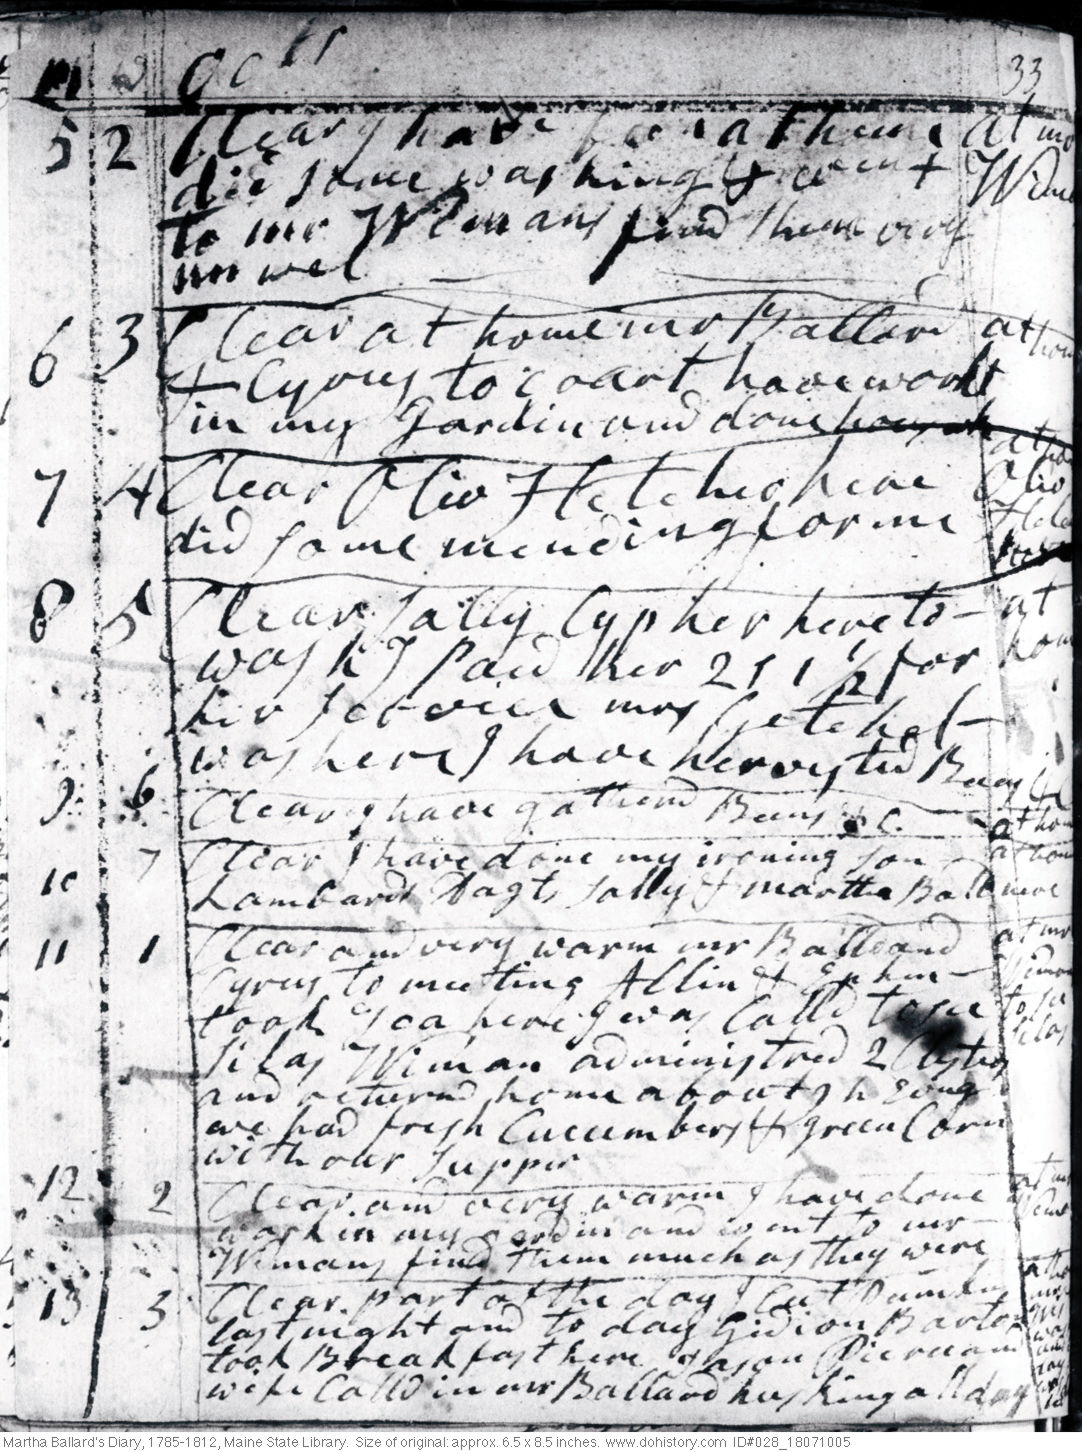 M D Octr 33
5 2 Clear I have been at home at mr
did some washing & went Wima
to mr Wimans find them very
unwel
6 3 Clear at home mr Ballard at hom
& Cyrus to coart have workt
in my Gardin and done houswk
7 4 Clear Oliv Fletcher here
did some mending for me
8 5 Clear Sally Cypher here to at
wash I Paid her 2/ 1 1/2 for hom
her service mrs Getchel
was here I have hervsted Beens &c
9 6 Clear I have gatherd Beens &c at hom
10 7 Clear I have done my ironing son at hom
Lambard Sally & martha Ball here
11 1 Clear and very warm mr Ballard at mr
Cyrus to meeting Allin & Ephm Wiman
took Tea here I was Calld to see to se
Silas Wiman administred 2 Clysters Silas
and returnd home about 9 h Evng
we had fresh Cucumbers & green Corn
with our supper
12 2 Clear and very warm I have done at mr
work in my gardin and went to mr
Wimans find them much as they were
13 3 Clear part of the day I Cut Pumkin
last night and to day Gidion Barton
took Breakfast here Jason Pierce and
wife Calld in mr Ballard husking all day
Martha Ballard's Diary, 1785-1812, Maine State Library. Size of original: approx. 6.5 x 8.5 inches. www.dohistory.com ID#028_18071005